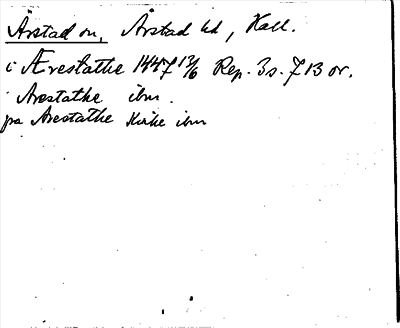 Årstad sn, Årstad hd, Hall.
i Ærestathe 1447 13/6 Rep. 3 s. 713 or.
Arestathe ibm.
pa Arestathe Kirke ibm